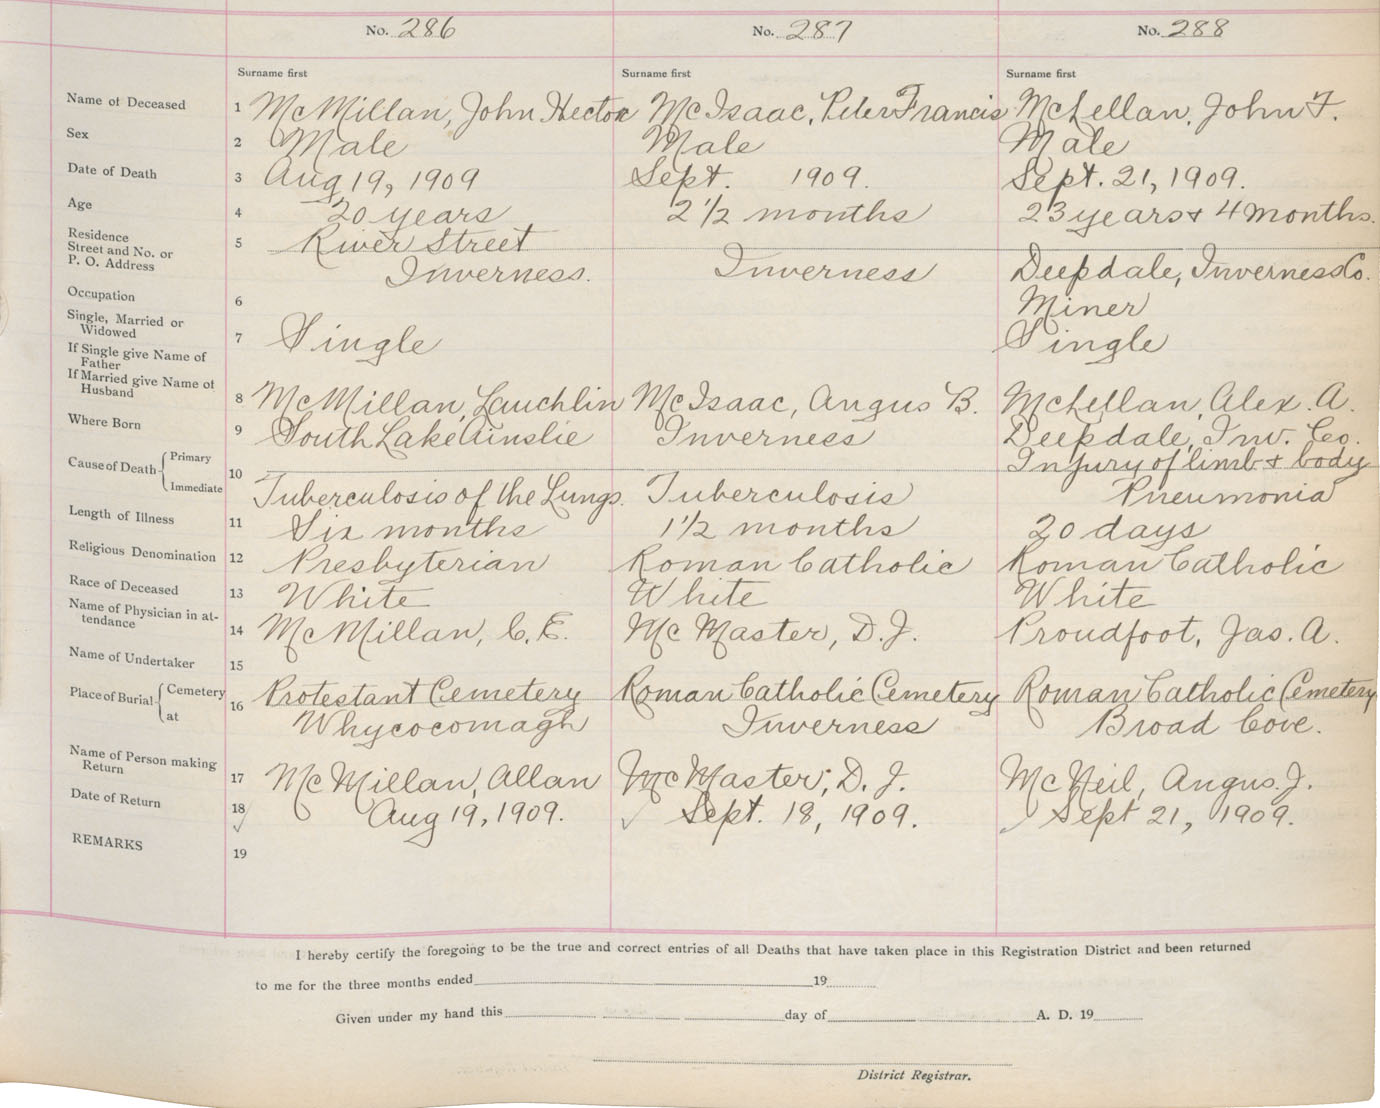 No. 286 No. 287 No. 288
Surname first Surname first Surname first
Name of Deceased 1 McMillan, John Hector McIsaac, Peter Francis McLellan, John F.
Sex 2 Male Male Male
Date of Death 3 Aug 19, 1909 Sept. 1909. Sept. 21, 1909.
Age 4 20 years 2 1/2 months 23 years & 4 months.
Residence 5 River Street
Street and No. or
P. O. Address Inverness. Inverness Deepdale, Inverness Co.
Occupation 6 Miner
Single, Married or
Widowed 7 Single Single
If Single give Name of
Father
If Married give Name of
Husband 8 McMillan, Lauchlin McIsaac, Angus B. McLellan, Alex. A.
Where Born 9 South Lake Ainslie Inverness Deepdale, Inv. Co.
Cause of Death Primary 10 Injury of limb & body
Immediate Tuberculosis of the Lungs. Tuberculosis Pneumonia
Length of Illness 11 Six months 1 1/2 months 20 days
Religious Denomination 12 Presbyterian Roman Catholic Roman Catholic
Race of Deceased 13 White White White
Name of Physician in at-
tendance 14 McMillan, C. E. McMaster, D. J. Proudfoot, Jas. A.
Name of Undertaker 15
Place of Burial Cemetery 16 Protestant Cemetery Roman Catholic Cemetery Roman Catholic Cemetery
at Whycocomagh Inverness Broad Cove.
Name of Person making
Return 17 McMillan, Allan McMaster, D. J. McNeil, Angus J.
Date of Return 18 Aug 19, 1909. Sept. 18, 1909. Sept 21, 1909.
REMARKS 19
I hereby certify the foregoing to be the true and correct entries of all Deaths that have taken place in this Registration District and been returned
to me for the three months ended 19
Given under my hand this day of A. D. 19
District Registrar.